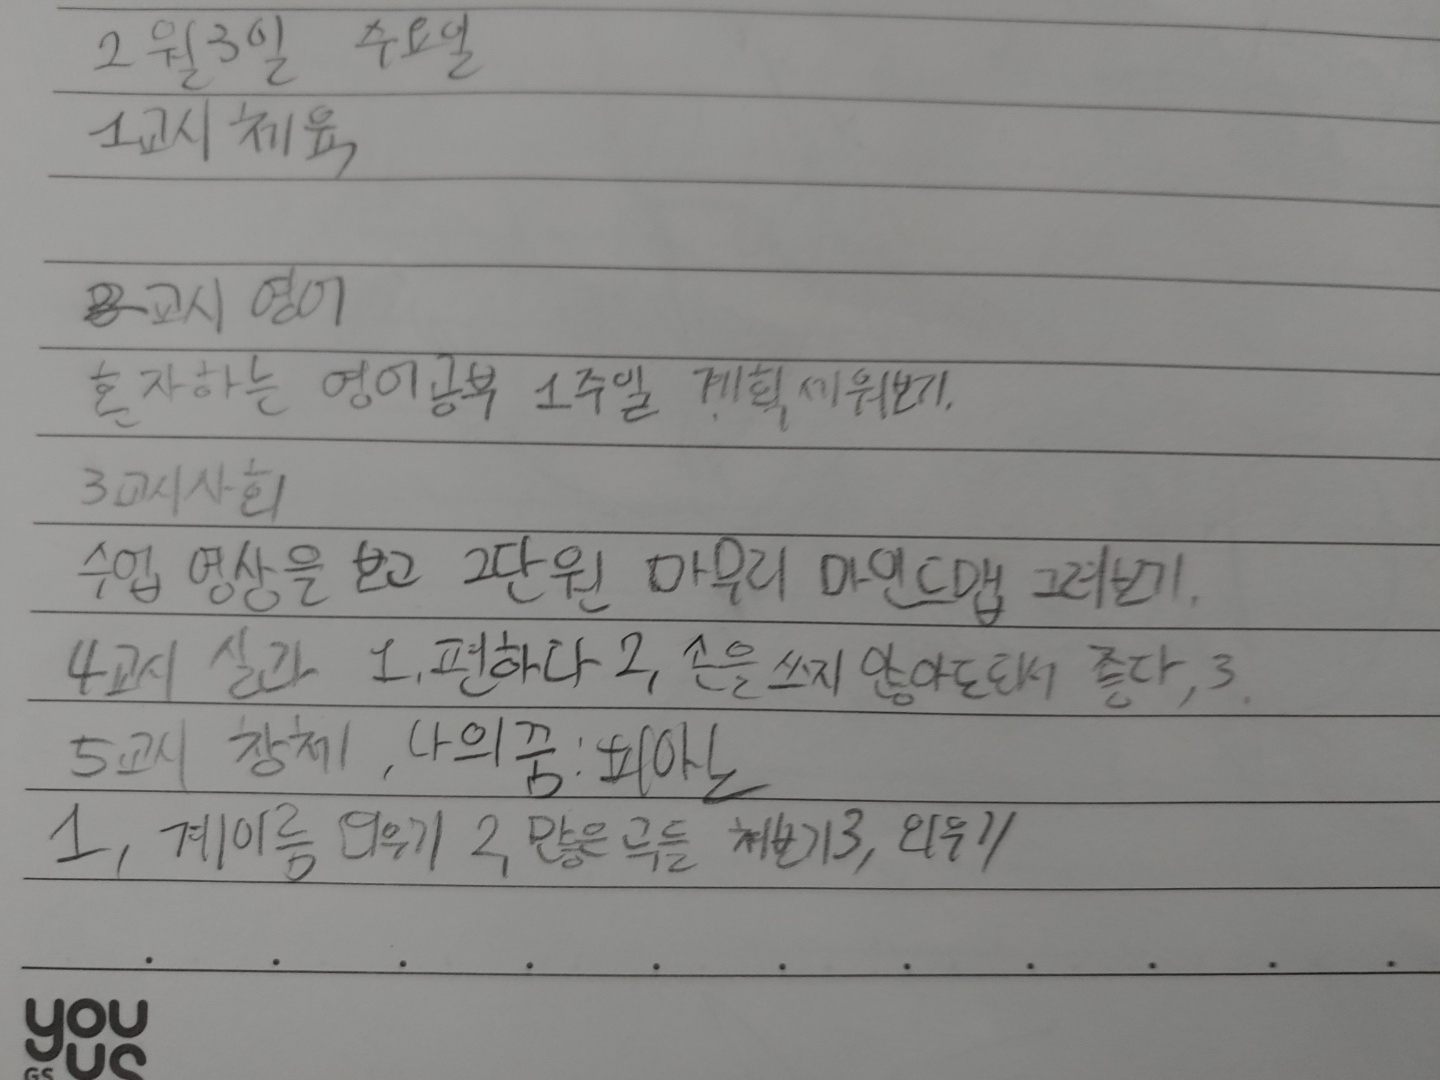 2월3일 수요일
1교시 체육
교시 영어
혼자하는 영어공부 1주일 계획세워보기.
3교시사회
수업 영상을 보고 2단원 마무리 마인드맵 그려보기.
4교시 실과 1. 편하다 2, 손을 쓰지 않아도되서 좋다, 3.
5교시 창체, 나의꿈: 피아노
1, 계이름 외우기 2, 많은 곡들 쳐보기3, 외우기
you
us
GS